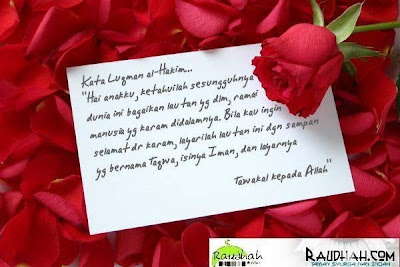 Kata Luqman al-Hakim..
"Hai anakku, ketahuilah sesungguhnya
dunia ini bagaikan lautan yg dlm, ramai
manusia yg karam didalamnya. Bila kau ingin
selamat dr karam, layarilah lautan ini dgn sampan
yg bernama Taqwa, isinya Iman, dan layarnya
Tawakal kepada Allah"
Raudhah
RAUDHAH.COM
TAMAN SYURGA NAN INDAH